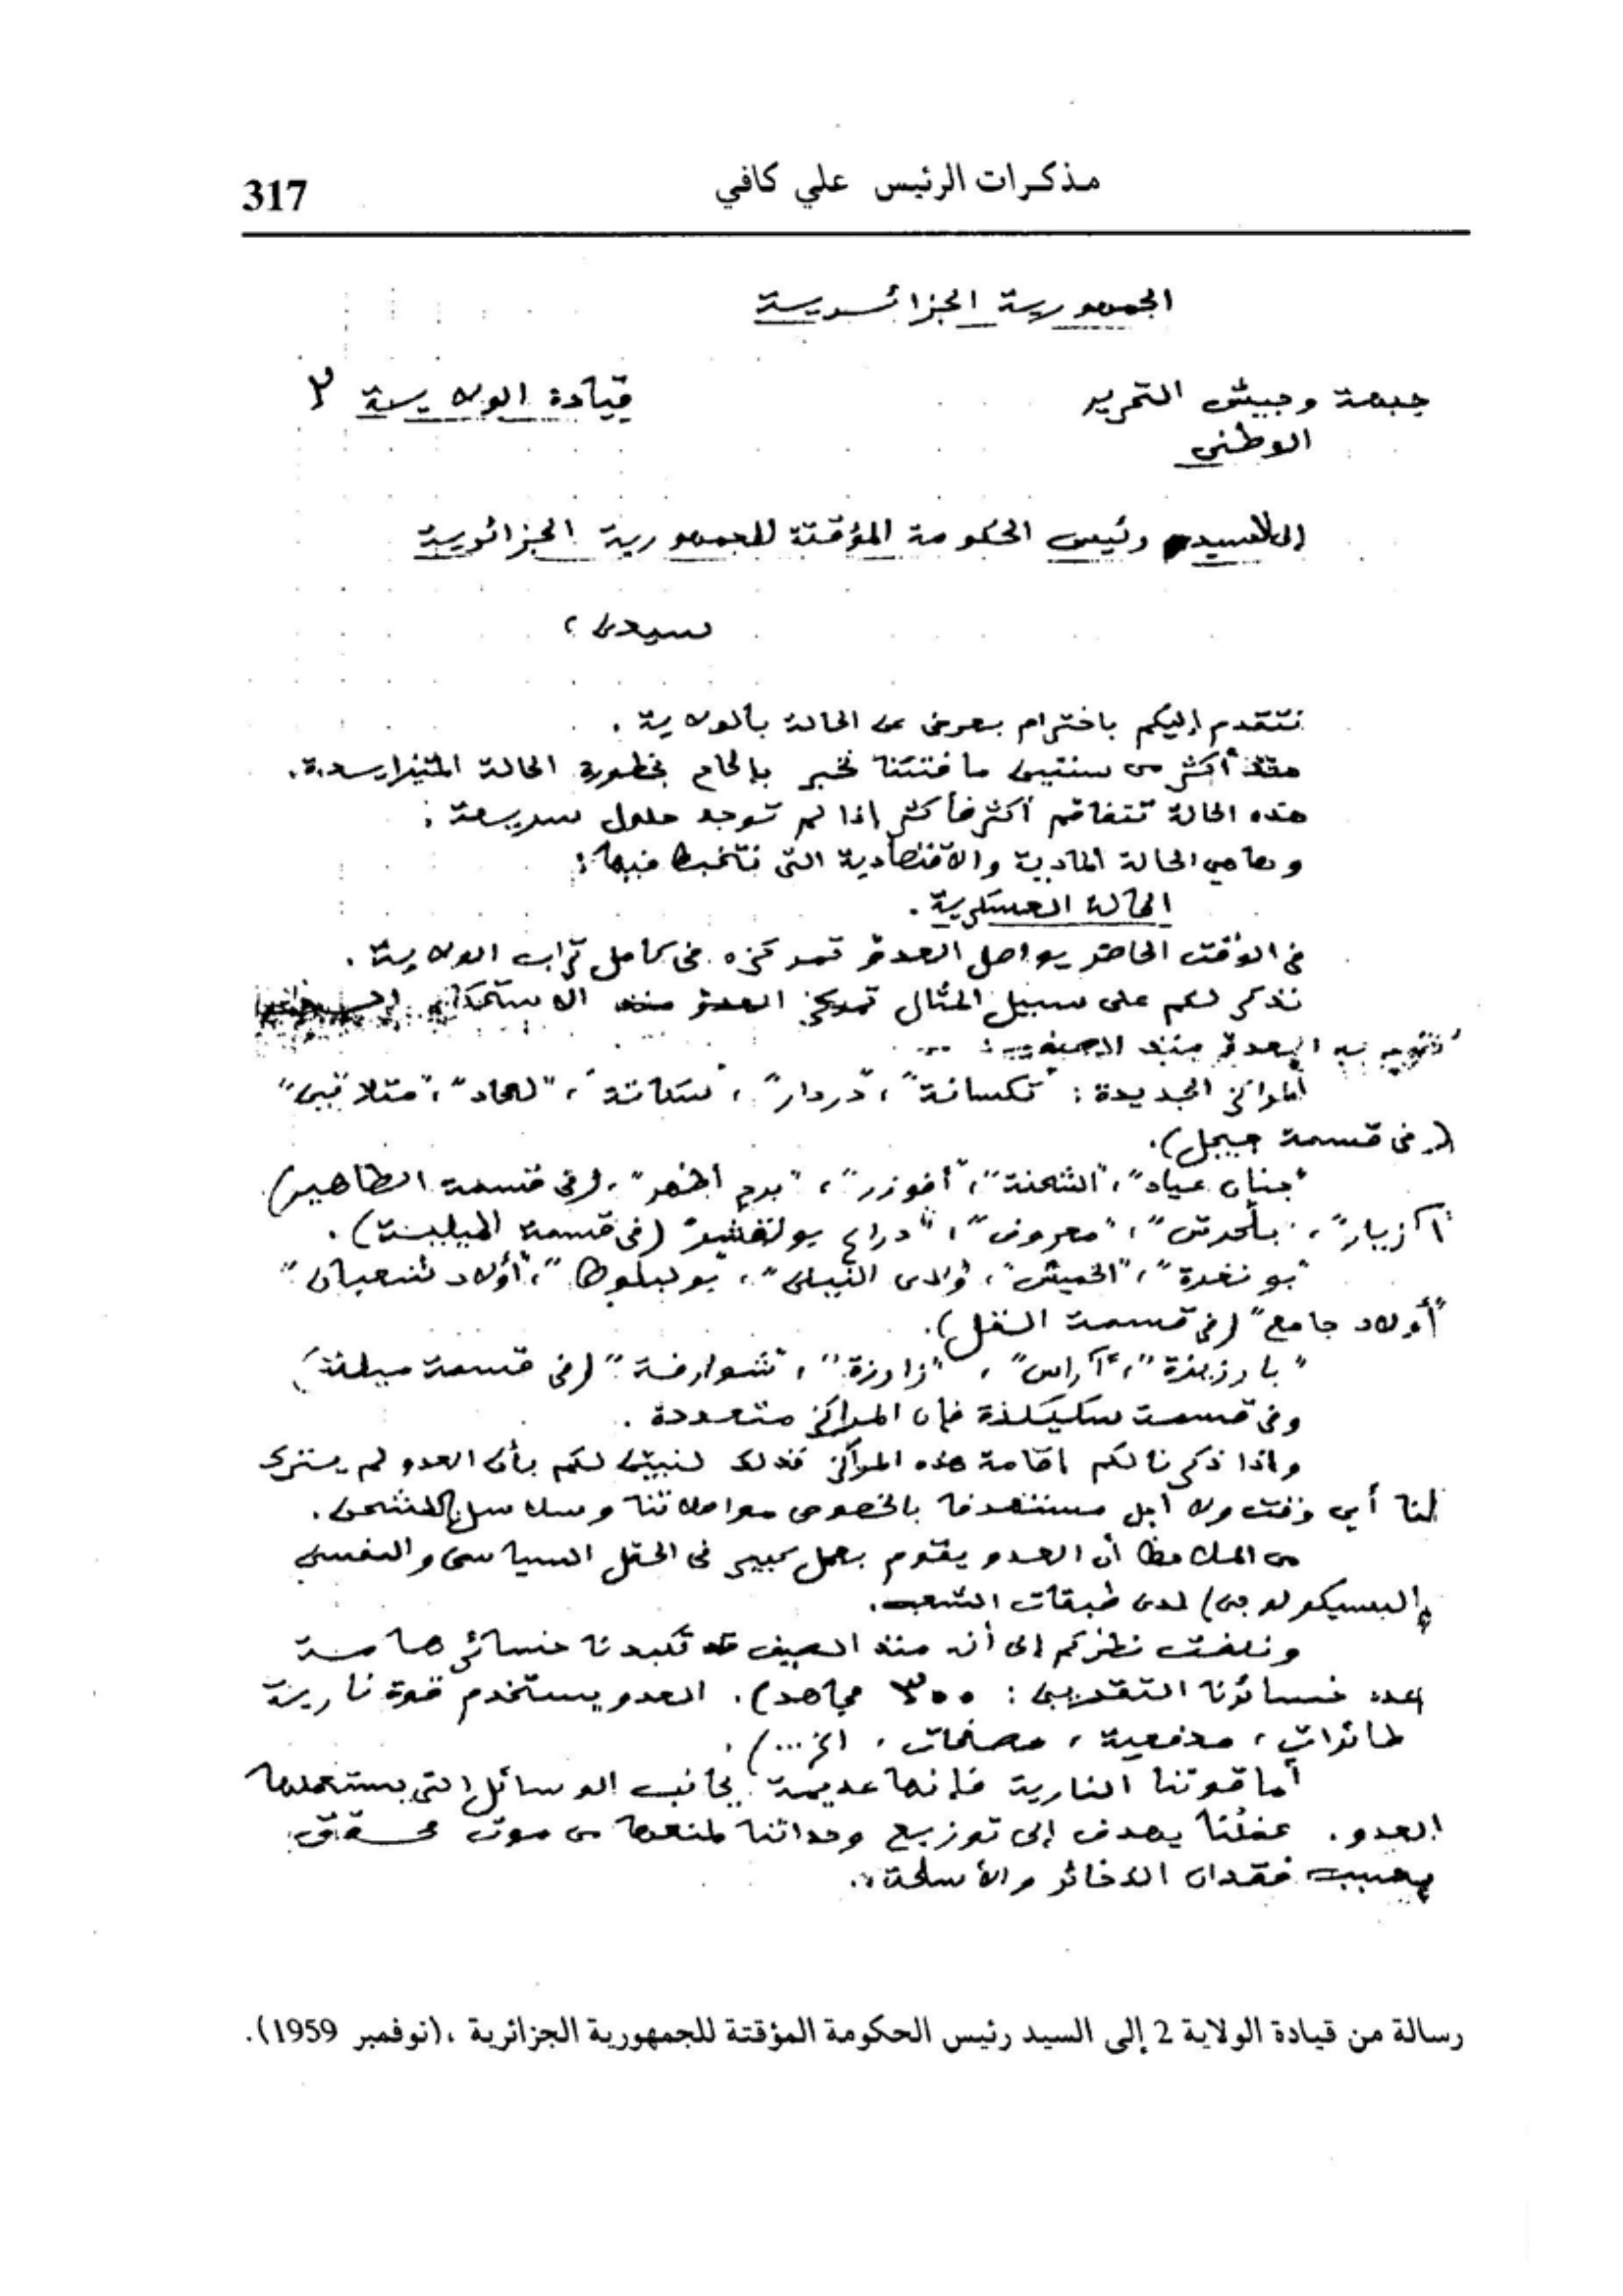 مذكرات الرئيس علي كافي
317
الجمهورية الجزائرية
جبهة وجيش التحرير
الوطني
قيادة الولاية ٢
إلى السيد رئيس الحكومة المؤقتة للجمهورية الجزائرية
سيدي،
نتقدم إليكم باحترام بعرض عن الحالة بالولاية.
منذ أكثر من سنتين ما فتئنا نخبر بإلحاح بخطورة الحالة المتزايدة.
هذه الحالة تتفاقم أكثر فأكثر إذا لم توجد حلول سريعة:
وها هي الحالة المادية والاقتصادية التي نتخبط فيها:
الحالة العسكرية.
في الوقت الحاضر يواصل العدو تمركزه في كامل تراب الولاية.
نذكر لكم على سبيل المثال تمركز العدو منذ
به العدو منذ الصيف:
المراكز الجديدة: "تكسانة"، "دردار"، "سكاتة"، "لحاد"،
(في قسمة جيجل).
"جنان عياد"، "الشحنة"، "أفوزر"، "برج الطهر"، (في قسمة الطاهير)
"معروف"، "دراع (في قسمة الميلية).
"بو نغرة"، "الحميش"، "وادي "، "بولبلوط"، "أولاد شعبان"
"أولاد جامع" (في قسمة القل).
"آراس"، "زاوزة"، (في قسمة ميلة)
وفي قسمة سكيكدة فإن المراكز متعددة.
وإذا ذكرنا لكم اقامة هذه المراكز فذلك لنبين لكم بأن العدو لم يترك
لنا أي وقت ولا أجل مستهدفا بالخصوص مواصلاتنا وسلاسل الشحن.
من الملاحظ أن العدو يقوم بعمل كبير في الحقل السياسي والنفسي
(البسيكولوجي) لدى طبقات الشعب.
ونلفت نظركم إلى أن منذ الصيف قد تكبدنا خسائر هامة
(عدد خسائرنا التقديري: ٣٥٠٠ مجاهد). العدو يستخدم قوة نارية
طائرات، مدفعية، مصفحات، الخ...).
أما قوتنا النارية فإنها عديمة بجانب الوسائل التي يستعملها
العدو. عملنا يهدف إلى توزيع وحداتنا لمنعها من موت محقق
بسبب فقدان الذخائر والأسلحة.
رسالة من قيادة الولاية 2 إلى السيد رئيس الحكومة المؤقتة للجمهورية الجزائرية ،(نوفمبر 1959).